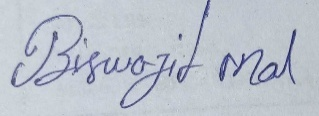 Biswajit Mal